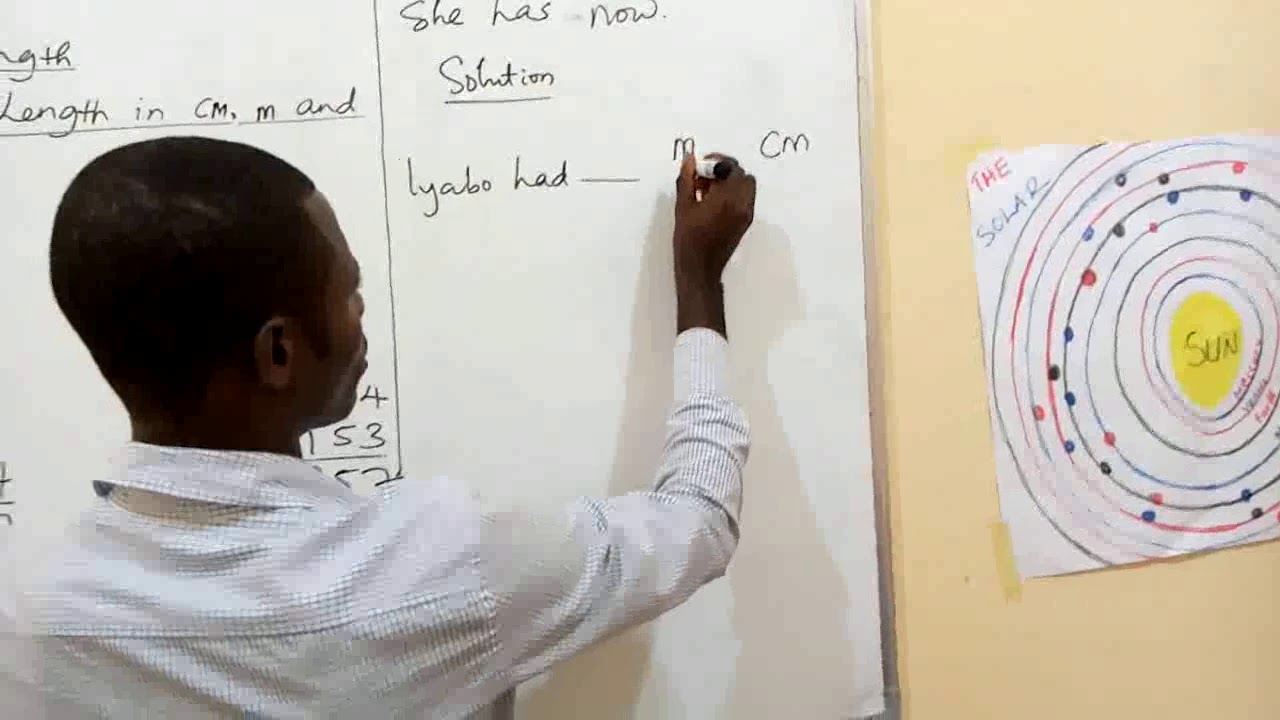 ngth
Length in cm, m and
4
153
She has now.
Solution
m cm
Iyabo had —
THE
SOLAR
SUN